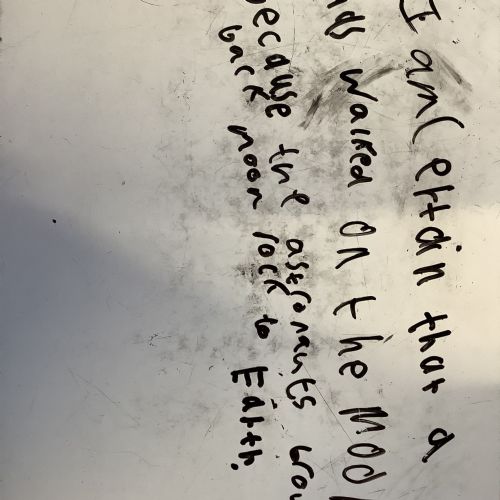 I am Certain that a
walked on the Moo
because the astronauts brou
back moon rock to Earth.